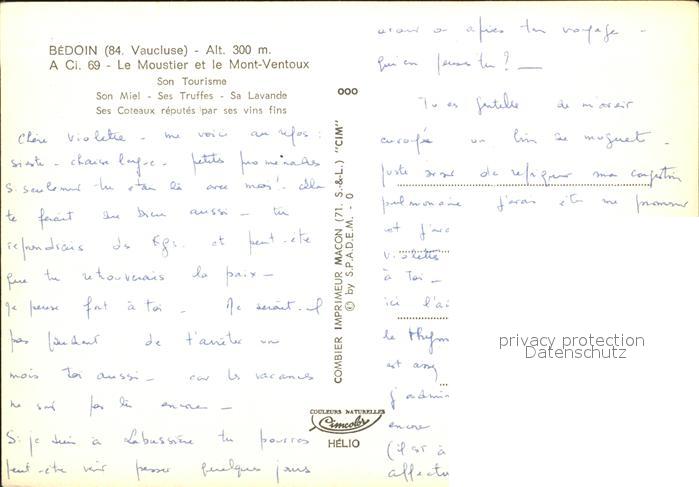 BÉDOIN (84. Vaucluse) - Alt. 300 m.
A Ci. 69 - Le Moustier et le Mont-Ventoux
Son Tourisme
Son Miel - Ses Truffes - Sa Lavande
Ses Coteaux réputés par ses vins fins
Chère Violette - me voici au repos :
sieste - chaise longue - petites promenades
Si seulement tu étais là avec moi! Cela
te ferait du bien aussi - tu
reprendrais des Kgs. et peut-être
que tu retrouverais la paix -
Je pense fort à toi - Ne serait-il
pas prudent de t'arrêter un
mois toi aussi - car les vacances
ne sont pas là encore -
Si je suis à Labussière tu pourras
peut-être venir passer quelques jours
COMBIER IMPRIMEUR MACON (71. S.-&-L.) "CIM"
© by S.P.A.D.E.M. - 0
COULEURS NATURELLES
Cimcolor
HÉLIO
avant ou après ton voyage -
qu'en penses tu ? -
Tu es gentille de m'avoir
envoyé un brin de muguet -
juste avant de
pulmonaire j'avais été me promener
et j'avais
violettes
à toi -
ici l'ai
le thym
est assez
j'admire
encore
(il est à
affectu
privacy protection
Datenschutz